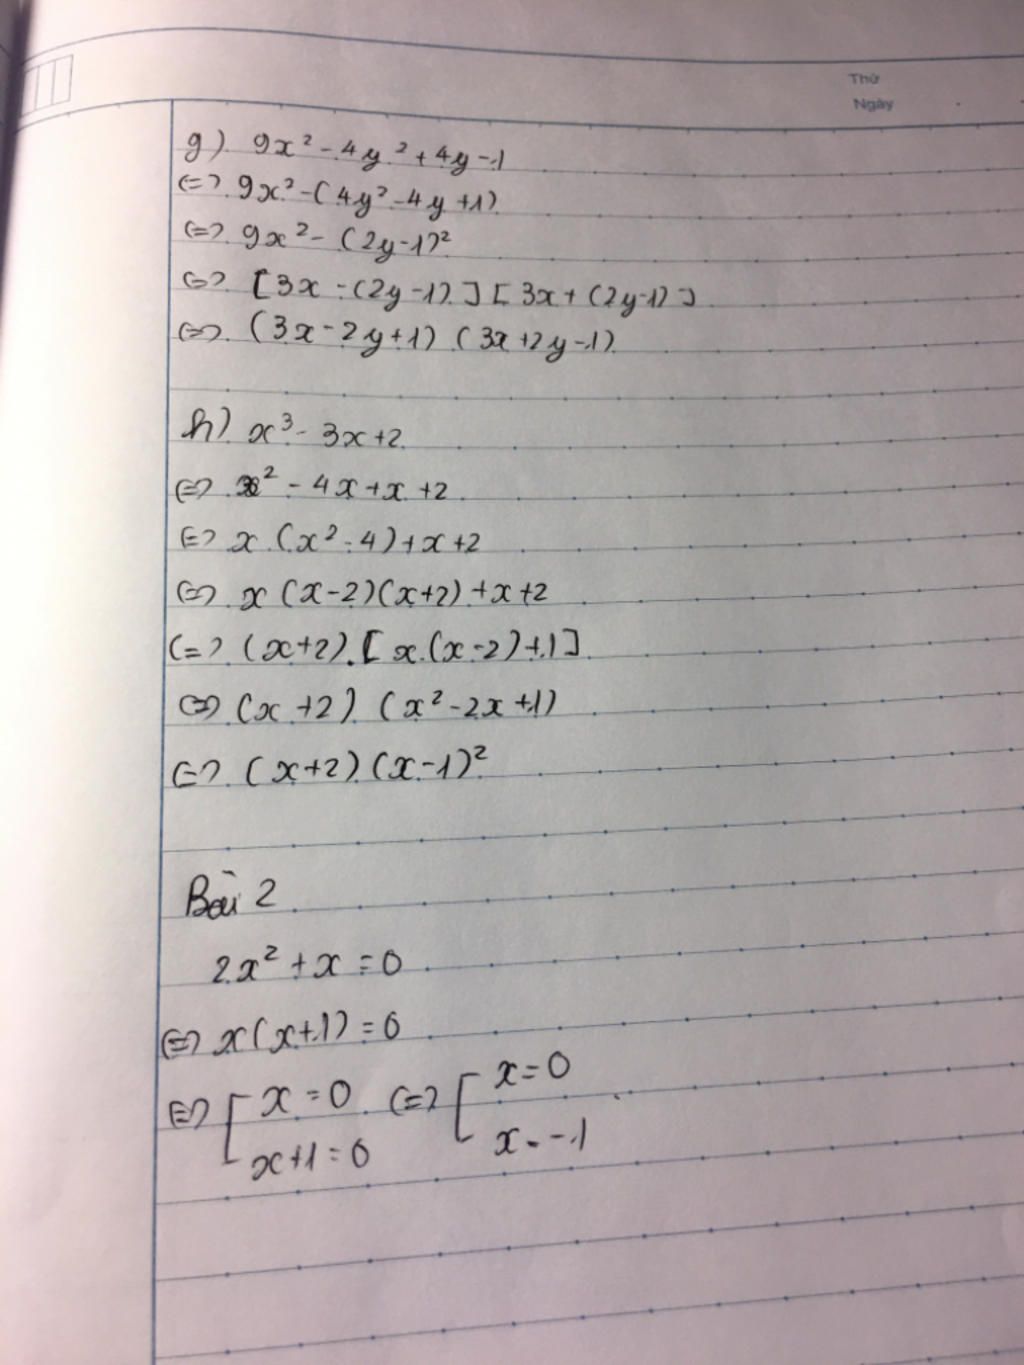 Thứ
Ngày
g) 9x² - 4y² + 4y - 1
(=) 9x² - (4y² - 4y + 1)
(=) 9x² - (2y - 1)²
(=) [3x - (2y - 1)] [3x + (2y - 1)]
(=) (3x - 2y + 1) (3x + 2y - 1)
h) x³ - 3x + 2
(=) x² - 4x + x + 2
(=) x (x² - 4) + x + 2
(=) x (x - 2)(x + 2) + x + 2
(=) (x + 2) . [x (x - 2) + 1]
(=) (x + 2) (x² - 2x + 1)
(=) (x + 2) (x - 1)²
Bài 2
2x² + x = 0
(=) x (x + 1) = 0
(=) [ x = 0 (=) [ x = 0
x + 1 = 0 x = -1